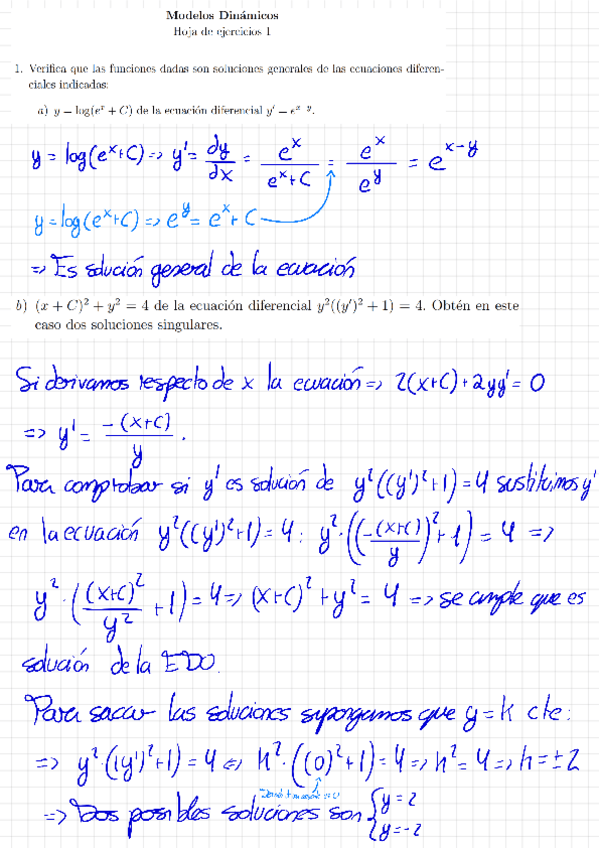 Modelos Dinámicos
Hoja de ejercicios 1
1. Verifica que las funciones dadas son soluciones generales de las ecuaciones diferen-
ciales indicadas:
a) y = log(eˣ + C) de la ecuación diferencial y' = eˣ⁻ʸ.
y = log(eˣ+C) => y' = dy/dx = eˣ/(eˣ+C) = eˣ/eʸ = eˣ⁻ʸ
y = log(eˣ+C) => eʸ = eˣ + C
=> Es solución general de la ecuación
b) (x + C)² + y² = 4 de la ecuación diferencial y²((y')² + 1) = 4. Obtén en este
caso dos soluciones singulares.
Si derivamos respecto de x la ecuación => 2(x+C) + 2yy' = 0
=> y' = -(x+C)/y.
Para comprobar si y' es solución de y²((y')²+1) = 4 sustituimos y'
en la ecuación y²((y')²+1) = 4: y²·((-(x+C)/y)²+1) = 4 =>
y²·((x+C)²/y² + 1) = 4 => (x+C)² + y² = 4 => se cumple que es
solución de la EDO.
Para sacar las soluciones supongamos que y = k cte:
=> y²·((y')²+1) = 4 <=> k²·((0)²+1) = 4 => k² = 4 => k = ±2
=> Dos posibles soluciones son { y = 2
y = -2